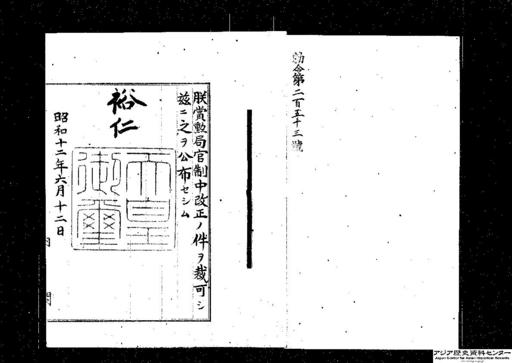 勅令第二百五十三號
朕賞勲局官制中改正ノ件ヲ裁可シ
茲ニ之ヲ公布セシム
裕仁
天皇
御璽
昭和十二年六月十二日
アジア歴史資料センター
Japan Center for Asian Historical Records